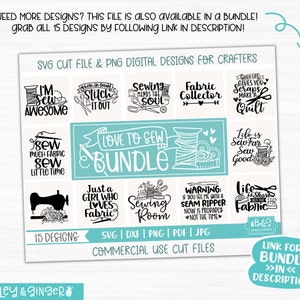 NEED MORE DESIGNS? THIS FILE IS ALSO AVAILABLE IN A BUNDLE!
GRAB ALL 15 DESIGNS BY FOLLOWING LINK IN DESCRIPTION!
SVG CUT FILE & PNG DIGITAL DESIGNS FOR CRAFTERS
I'M
SEW
AWESOME
STITCH
IT OUT
SEWING
MENDS THE
SOUL
Fabric
Collector
WHEN LIFE
GIVES YOU
SCRAPS
MAKE A
Quilt
SEW
MUCH FABRIC
SEW
LITTLE TIME
LOVE TO SEW
BUNDLE
Life is
Sew Far
Sew
Good
Just a
GIRL WHO
LOVES
Fabric
Sewing
Room
WARNING:
IF YOU SEE ME WITH A
SEAM RIPPER
NOW IS PROBABLY
NOT THE TIME
Life
Fabric
15 DESIGNS:
SVG | DXF | PNG | PDF | JPG
COMMERCIAL USE CUT FILES
LINK FOR
BUNDLE
>>IN<<
DESCRIPTION
LEY & GINGER